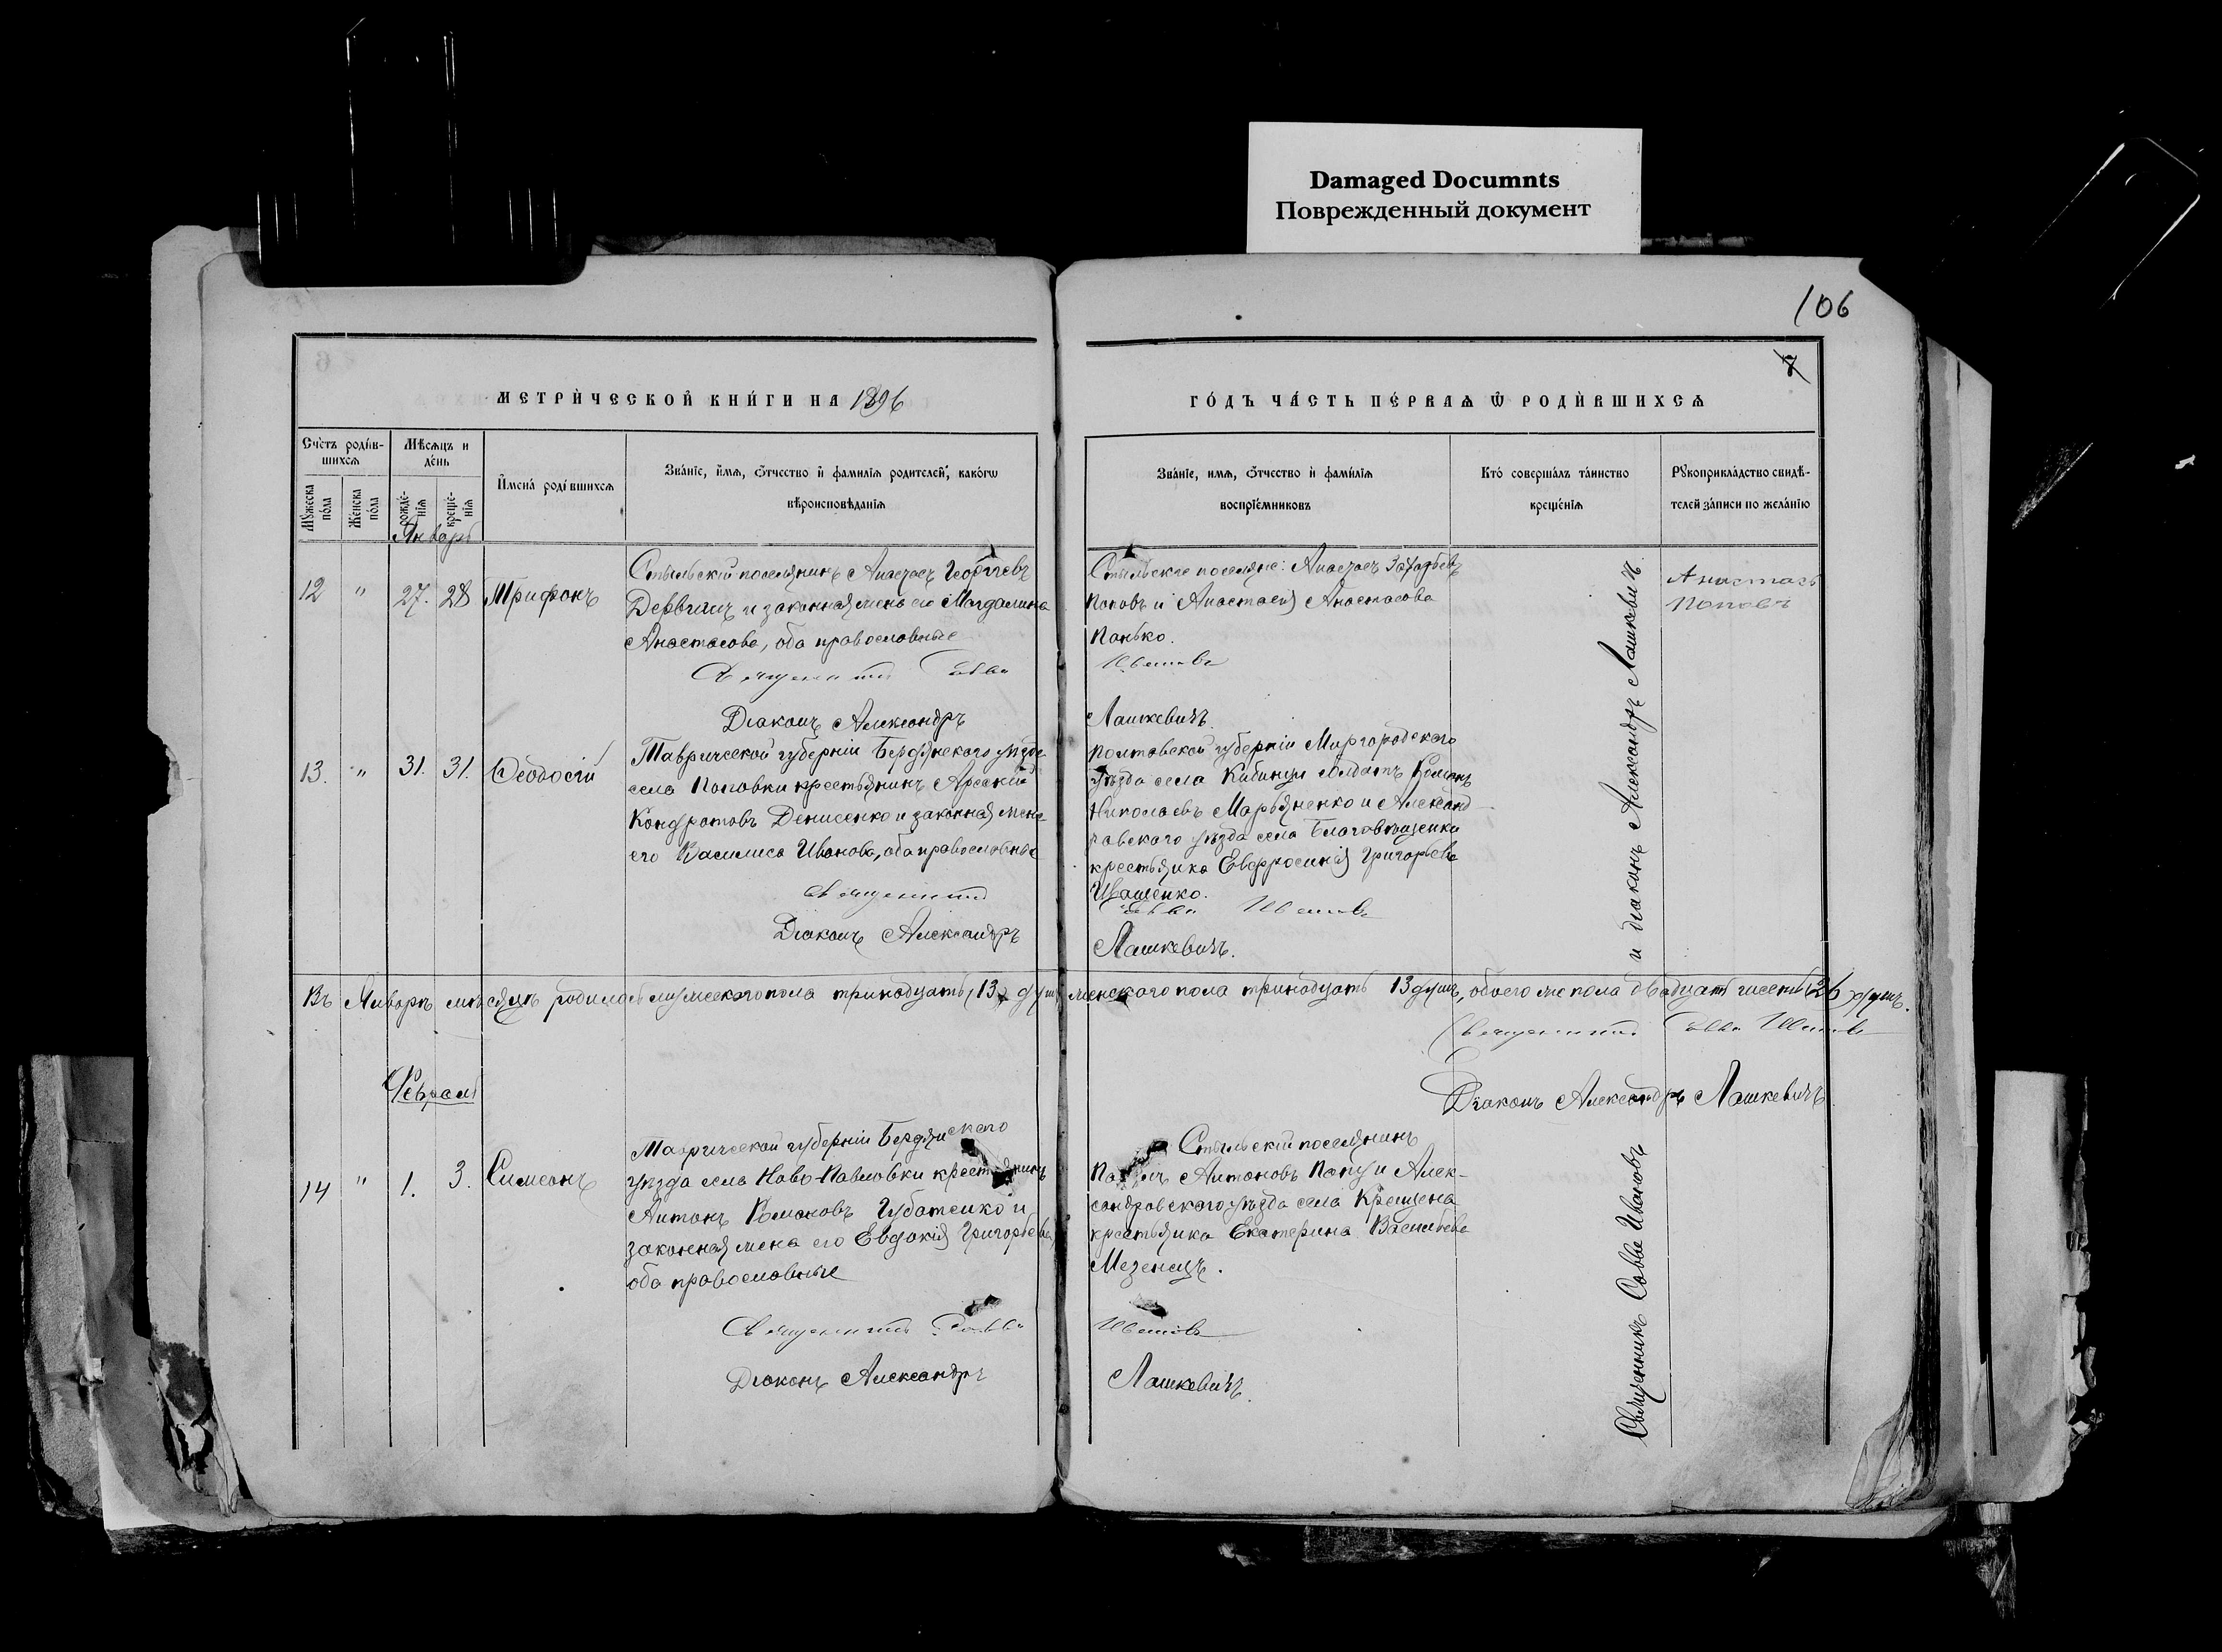 Damaged Documnts
Поврежденный документ
106
7
МЕТРИ́ЧЕСКОЙ КНИ́ГИ НА 1896
ГО́ДЪ ЧА́СТЬ ПЕ́РВАѦ Ѿ РОДИ́ВШИХСѦ
Сче́тъ роди́в-
шихсѧ
Мѣсѧцъ и
де́нь
Мꙋжеска
по́ла
Же́нска
по́ла
рожде́-
нїѧ
креще́-
нїѧ
И҆мена̀ роди́вшихсѧ
Зва́нїе, и҆́мѧ, ѻ҆́тчество и҆ фамилїѧ родителей, како́гѡ
вѣроисповѣ́данїѧ
Зва́нїе, имѧ, ѻ҆́тчество и҆ фами́лїѧ
воспрїе́мниковъ
Кто́ соверша́лъ та́инство
креще́нїѧ
Рꙋкоприкла́дство свидѣ́-
телей за́писи по жела́нїю
Январь
12 " 27. 28 Трифонъ
Стыльскій поселянинъ Анастасъ Георгіевъ
и законная жена его Магдалина
Анастасова, оба православные
Священникъ Савва
Діаконъ Александръ
Стыльскіе поселяне: Анастасъ
Поповъ и Анастасія Анастасова
Панько.
Ивановъ
Лашкевичъ.
Анастасъ
Поповъ
13. " 31. 31. Ѳеодосій
Таврической губерніи Бердянского уѣзда
села Поповки крестьянинъ
Кондратовъ Денисенко и законная жена
его Василиса Иванова, оба православные
Священникъ
Діаконъ Александръ
Полтавской губерніи Миргородского
уѣзда села Кибинци солдатъ Романъ
Николаевъ Марьяненко и Александ-
ровского уѣзда села Благовѣщенки
крестьянка Евфросинія Григорьева
Иващенко.
Савва Ивановъ
Лашкевичъ.
и діаконъ Александръ Лашкевичъ
Въ Январѣ мѣсяцѣ родилось мужескаго пола тринадцать (13) душъ, женскаго пола тринадцать 13 душъ, обоего же пола двадцать шесть (26) душъ.
Священникъ Савва Ивановъ
Діаконъ Александръ Лашкевичъ
Февраль
14 " 1. 3. Симеонъ
Таврической губерніи Бердянского
уѣзда села Ново-Павловки крестьянинъ
Антонъ Романовъ Губатенко и
законная жена его Евдокія Григорьева,
оба православные
Священникъ Савва
Діаконъ Александръ
Стыльскій поселянинъ
Антоновъ Папу и Алек-
сандровского уѣзда села Крещена
крестьянка Екатерина Васильева
Мезенецъ.
Ивановъ
Лашкевичъ.
Священникъ Савва Ивановъ